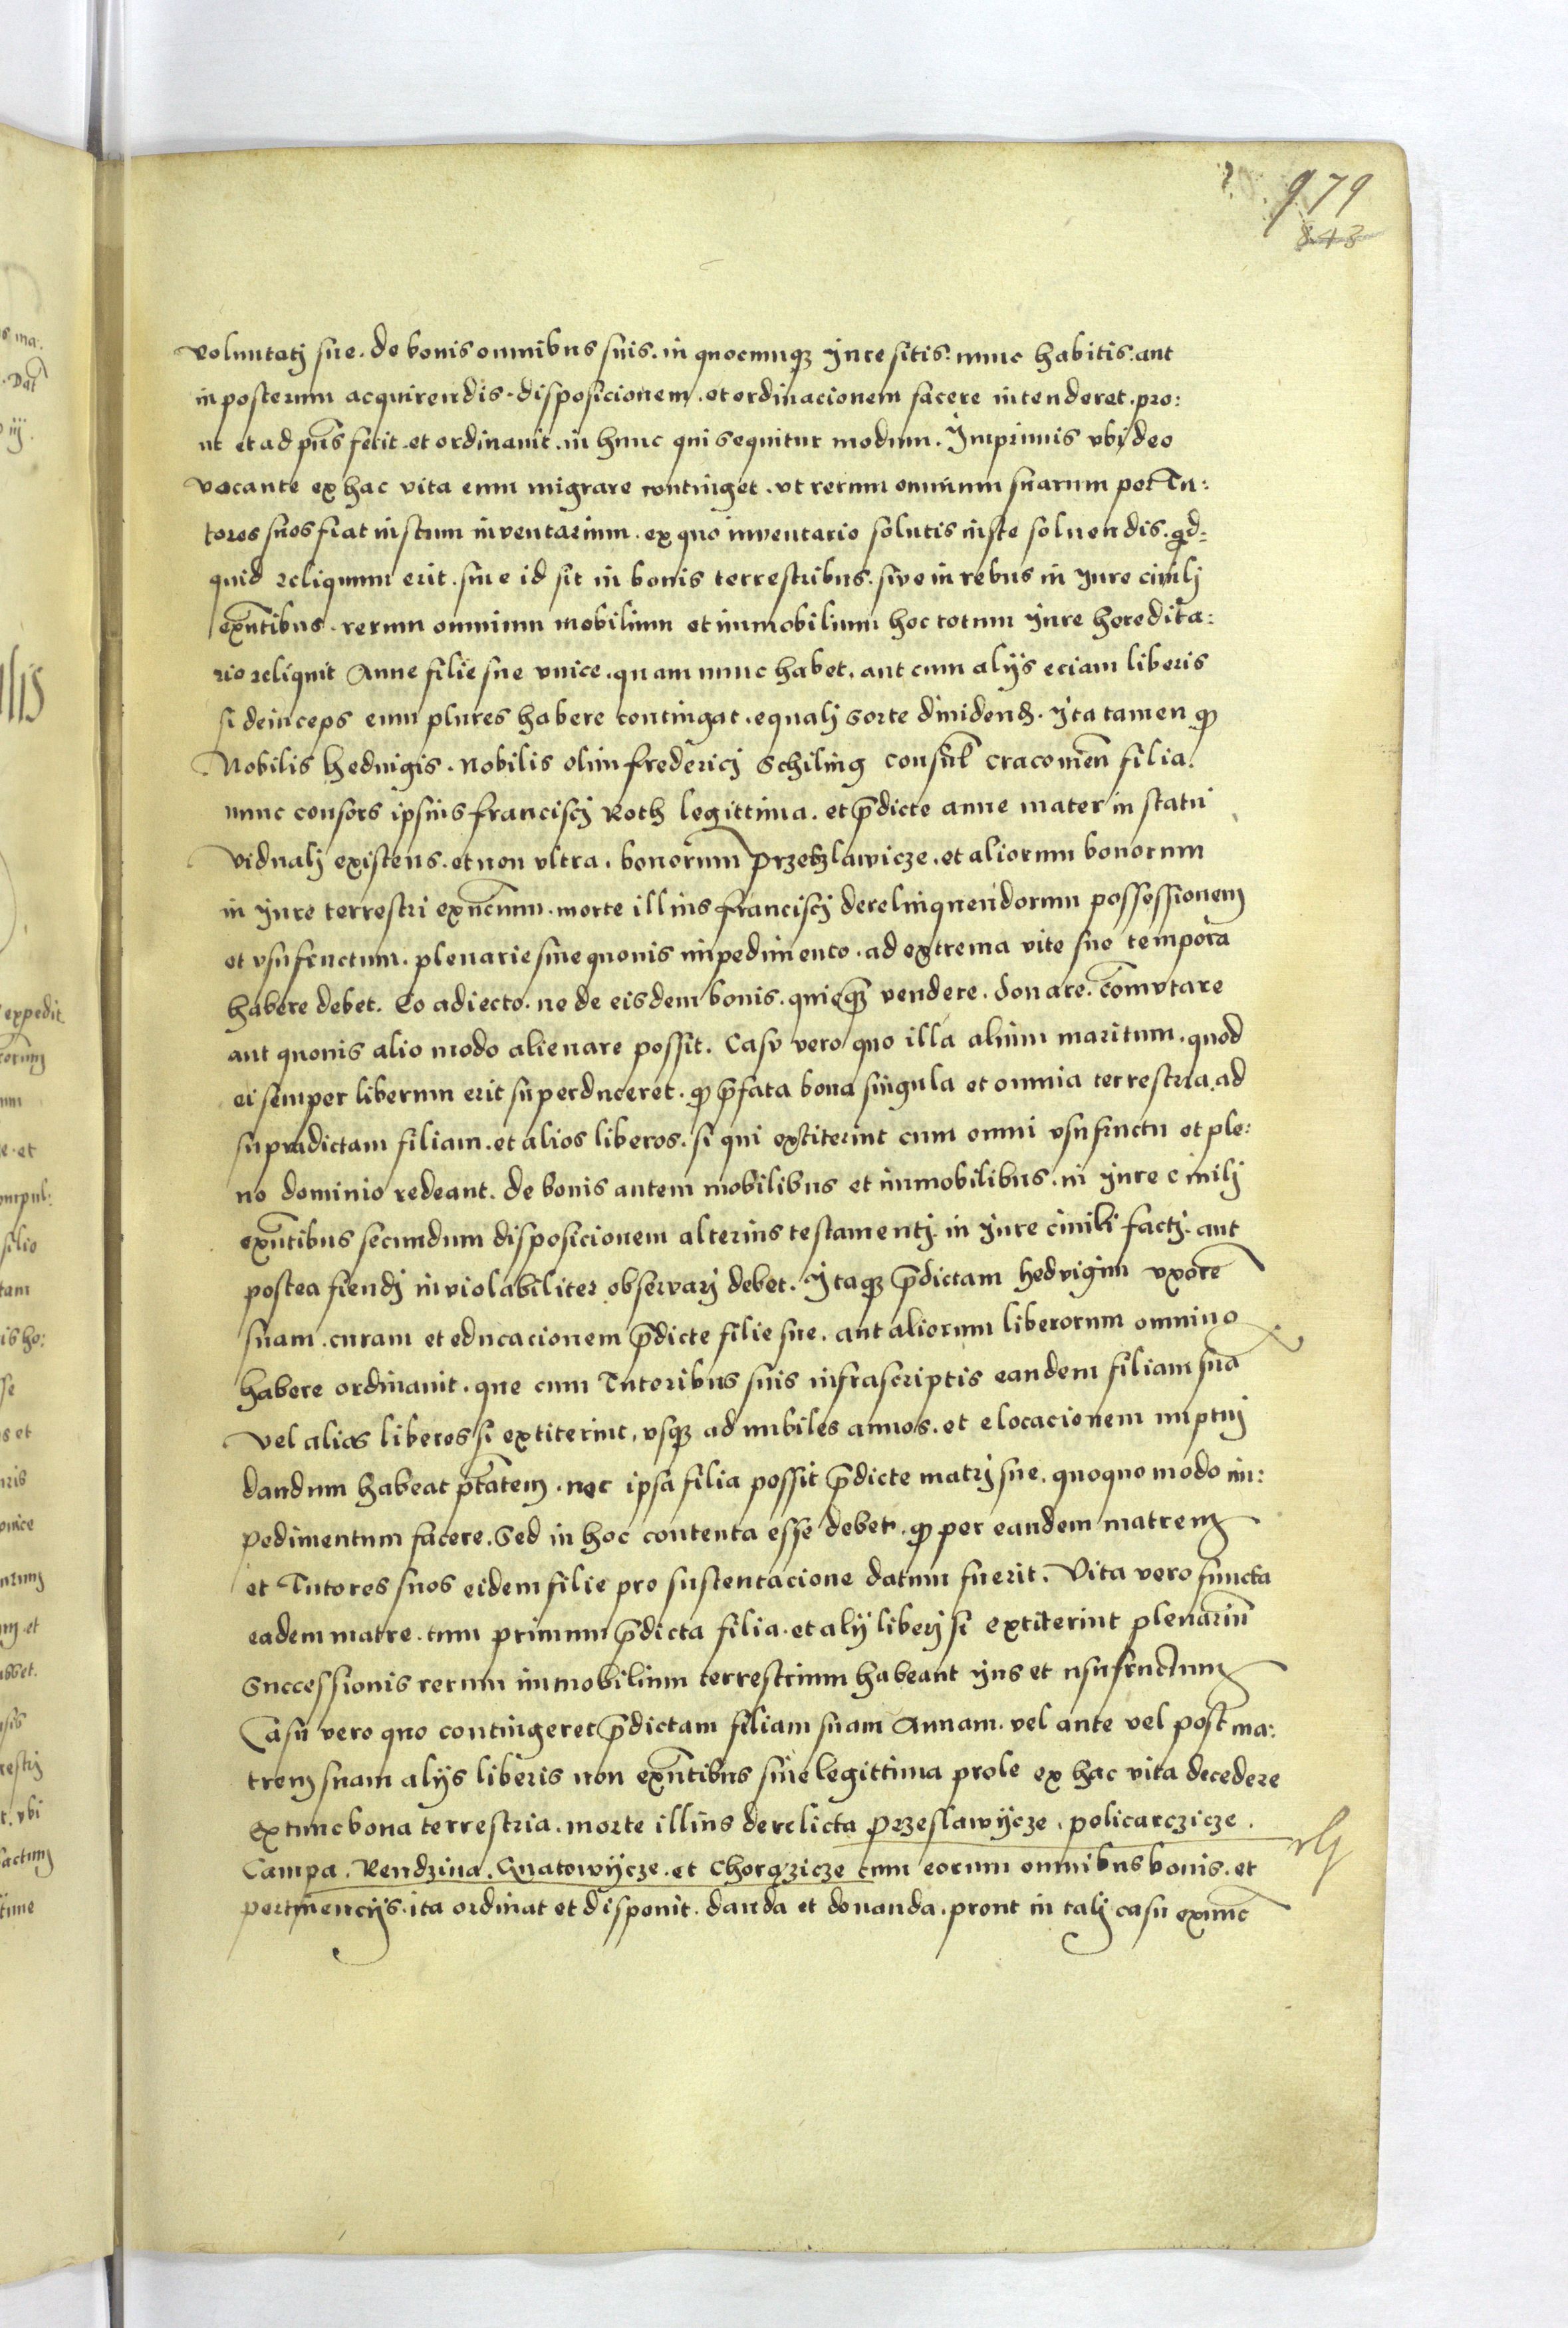 979
843
voluntatj sue. de bonis omnibus suis. in quocumqꝫ jure sitis. nunc habitis. aut
in posterum acquirendis. disposicionem. et ordinacionem facere intenderet. pro:
ut et ad pn̄s fecit. et ordinauit. in hunc qui sequitur modum. Imprimis vbj deo
vocante ex hac vita eum migrare continget. vt rerum omnium suarum per Tu:
tores suos fiat iustum inventarium. ex quo inventario solutis iuste soluendis. qd:
quid reliquum erit. siue id sit in bonis terrestribus. sive in rebus in jure ciuilj
exn̄tibus. rerum omnium mobilium et immobilium hoc totum jure heredita:
rio reliquit Anne filie sue vnice. quam nunc habet. aut cum alijs eciam liberis
si deinceps eum plures habere contingat. equalj sorte diuidend. Ita tamen qͣ
Nobilis hedvigis. nobilis olim fredericj Schiling consul̄ cracouien̄ filia.
nunc consors ipsius franciscj Roth legittima. et p̄dicte anne mater in statu
viduali existens. et non vltra. bonorum Przetzlawicze. et aliorum bonorum
in jure terrestri exn̄cium. morte illius franciscj derelinquendorum possessionem
et vsufructum. plenarie sine quouis impedimento. ad extrema vite sue tempora
habere debet. Eo adiecto. ne de eisdem bonis. quicqꝫ vendere. donare. com̄utare
aut quouis alio modo alienare possit. Casu vero quo illa alium maritum. quod
ei semper liberum erit superduceret. qͣ p̄fata bona singula et omnia terrestria. ad
supradictam filiam. et alios liberos. si qui extiterint cum omni vsufructu et ple:
no dominio redeant. de bonis autem mobilibus et immobilibus. in jure ciuilj
exn̄tibus secundum disposicionem alterius testamentj. in jure ciuili factj. aut
postea fiendj inviolabiliter observarj debet. Itaqꝫ p̄dictam hedvigim vxorē
suam. curam et educacionem p̄dicte filie sue. aut aliorum liberorum omnino
habere ordinauit. que cum Tutoribus suis infrascriptis eandem filiam suā
vel alios liberos si extiterint, vsqꝫ ad nubiles annos. et elocacionem nuptuj
dandum habeat ptātem. nec ipsa filia possit p̄dicte matrj sue. quoquo modo im:
pedimentum facere. Sed in hoc contenta esse debet. qͣ per eandem matrem
et Tutores suos eidem filie pro sustentacione datum fuerit. Vita vero functa
eadem matre. tum primum p̄dicta filia. et alij liberj si extiterint plenariū
Successionis rerum immobilium terrestrium habeant jus et usufructum
Casu vero quo contingeret p̄dictam filiam suam Annam. vel ante vel post ma:
trem suam alijs liberis non exn̄tibus sine legittima prole ex hac vita decedere
extunc bona terrestria. morte illius derelicta Przeslawijcze. policarczicze.
Campa. Rendzina. Gnatowijcze. et Chorążicze cum eorum omnibus bonis. et
pertinencijs. ita ordinat et disponit. danda et donanda. prout in talj casu exnunc